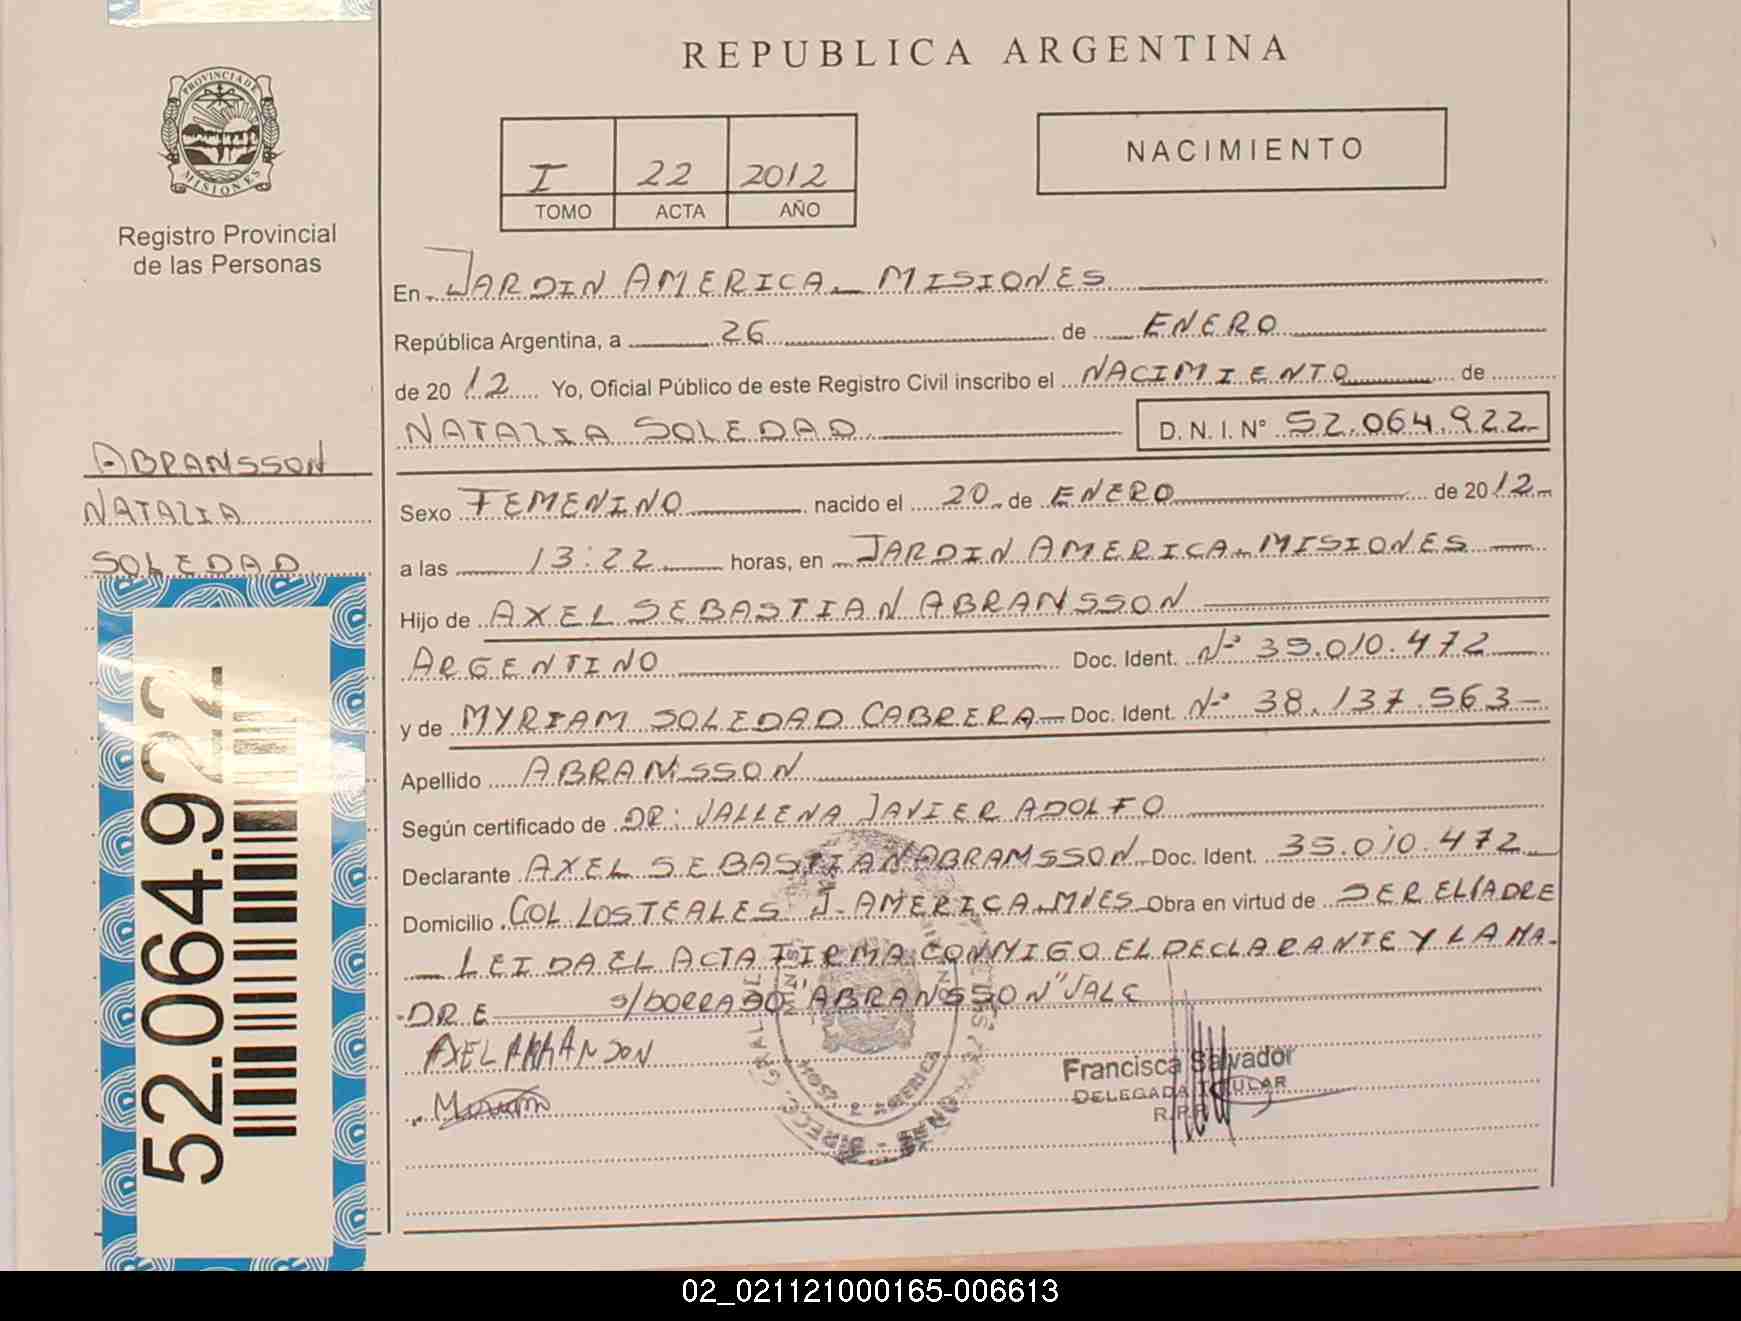 REPUBLICA ARGENTINA
PROVINCIA DE
MISIONES
Registro Provincial
de las Personas
I 22 2012
TOMO ACTA AÑO
NACIMIENTO
En JARDIN AMERICA - MISIONES
República Argentina, a 26 de ENERO
de 2012 Yo, Oficial Público de este Registro Civil inscribo el NACIMIENTO de
NATALIA SOLEDAD D. N. I. N° 52.064.922
ABRAMSSON
NATALIA
SOLEDAD
Sexo FEMENINO nacido el 20 de ENERO de 2012
a las 13:22 horas, en JARDIN AMERICA - MISIONES
Hijo de AXEL SEBASTIAN ABRAMSSON
ARGENTINO Doc. Ident. Nº 35.010.472
y de MYRIAM SOLEDAD CABRERA Doc. Ident. Nº 38.137.563
Apellido ABRAMSSON
Según certificado de DR: VALLENA JAVIER ADOLFO
Declarante AXEL SEBASTIAN ABRAMSSON Doc. Ident. 35.010.472
Domicilio COL LOS TEALES J. AMERICA - MNES Obra en virtud de SER EL PADRE
LEIDA EL ACTA FIRMA CONMIGO EL DECLARANTE Y LA MA-
DRE s/BORRADO "ABRANSSON" VALE
AXEL
Francisca Salvador
DELEGADA TITULAR
R.P.P.
52.064.922
02_021121000165-006613